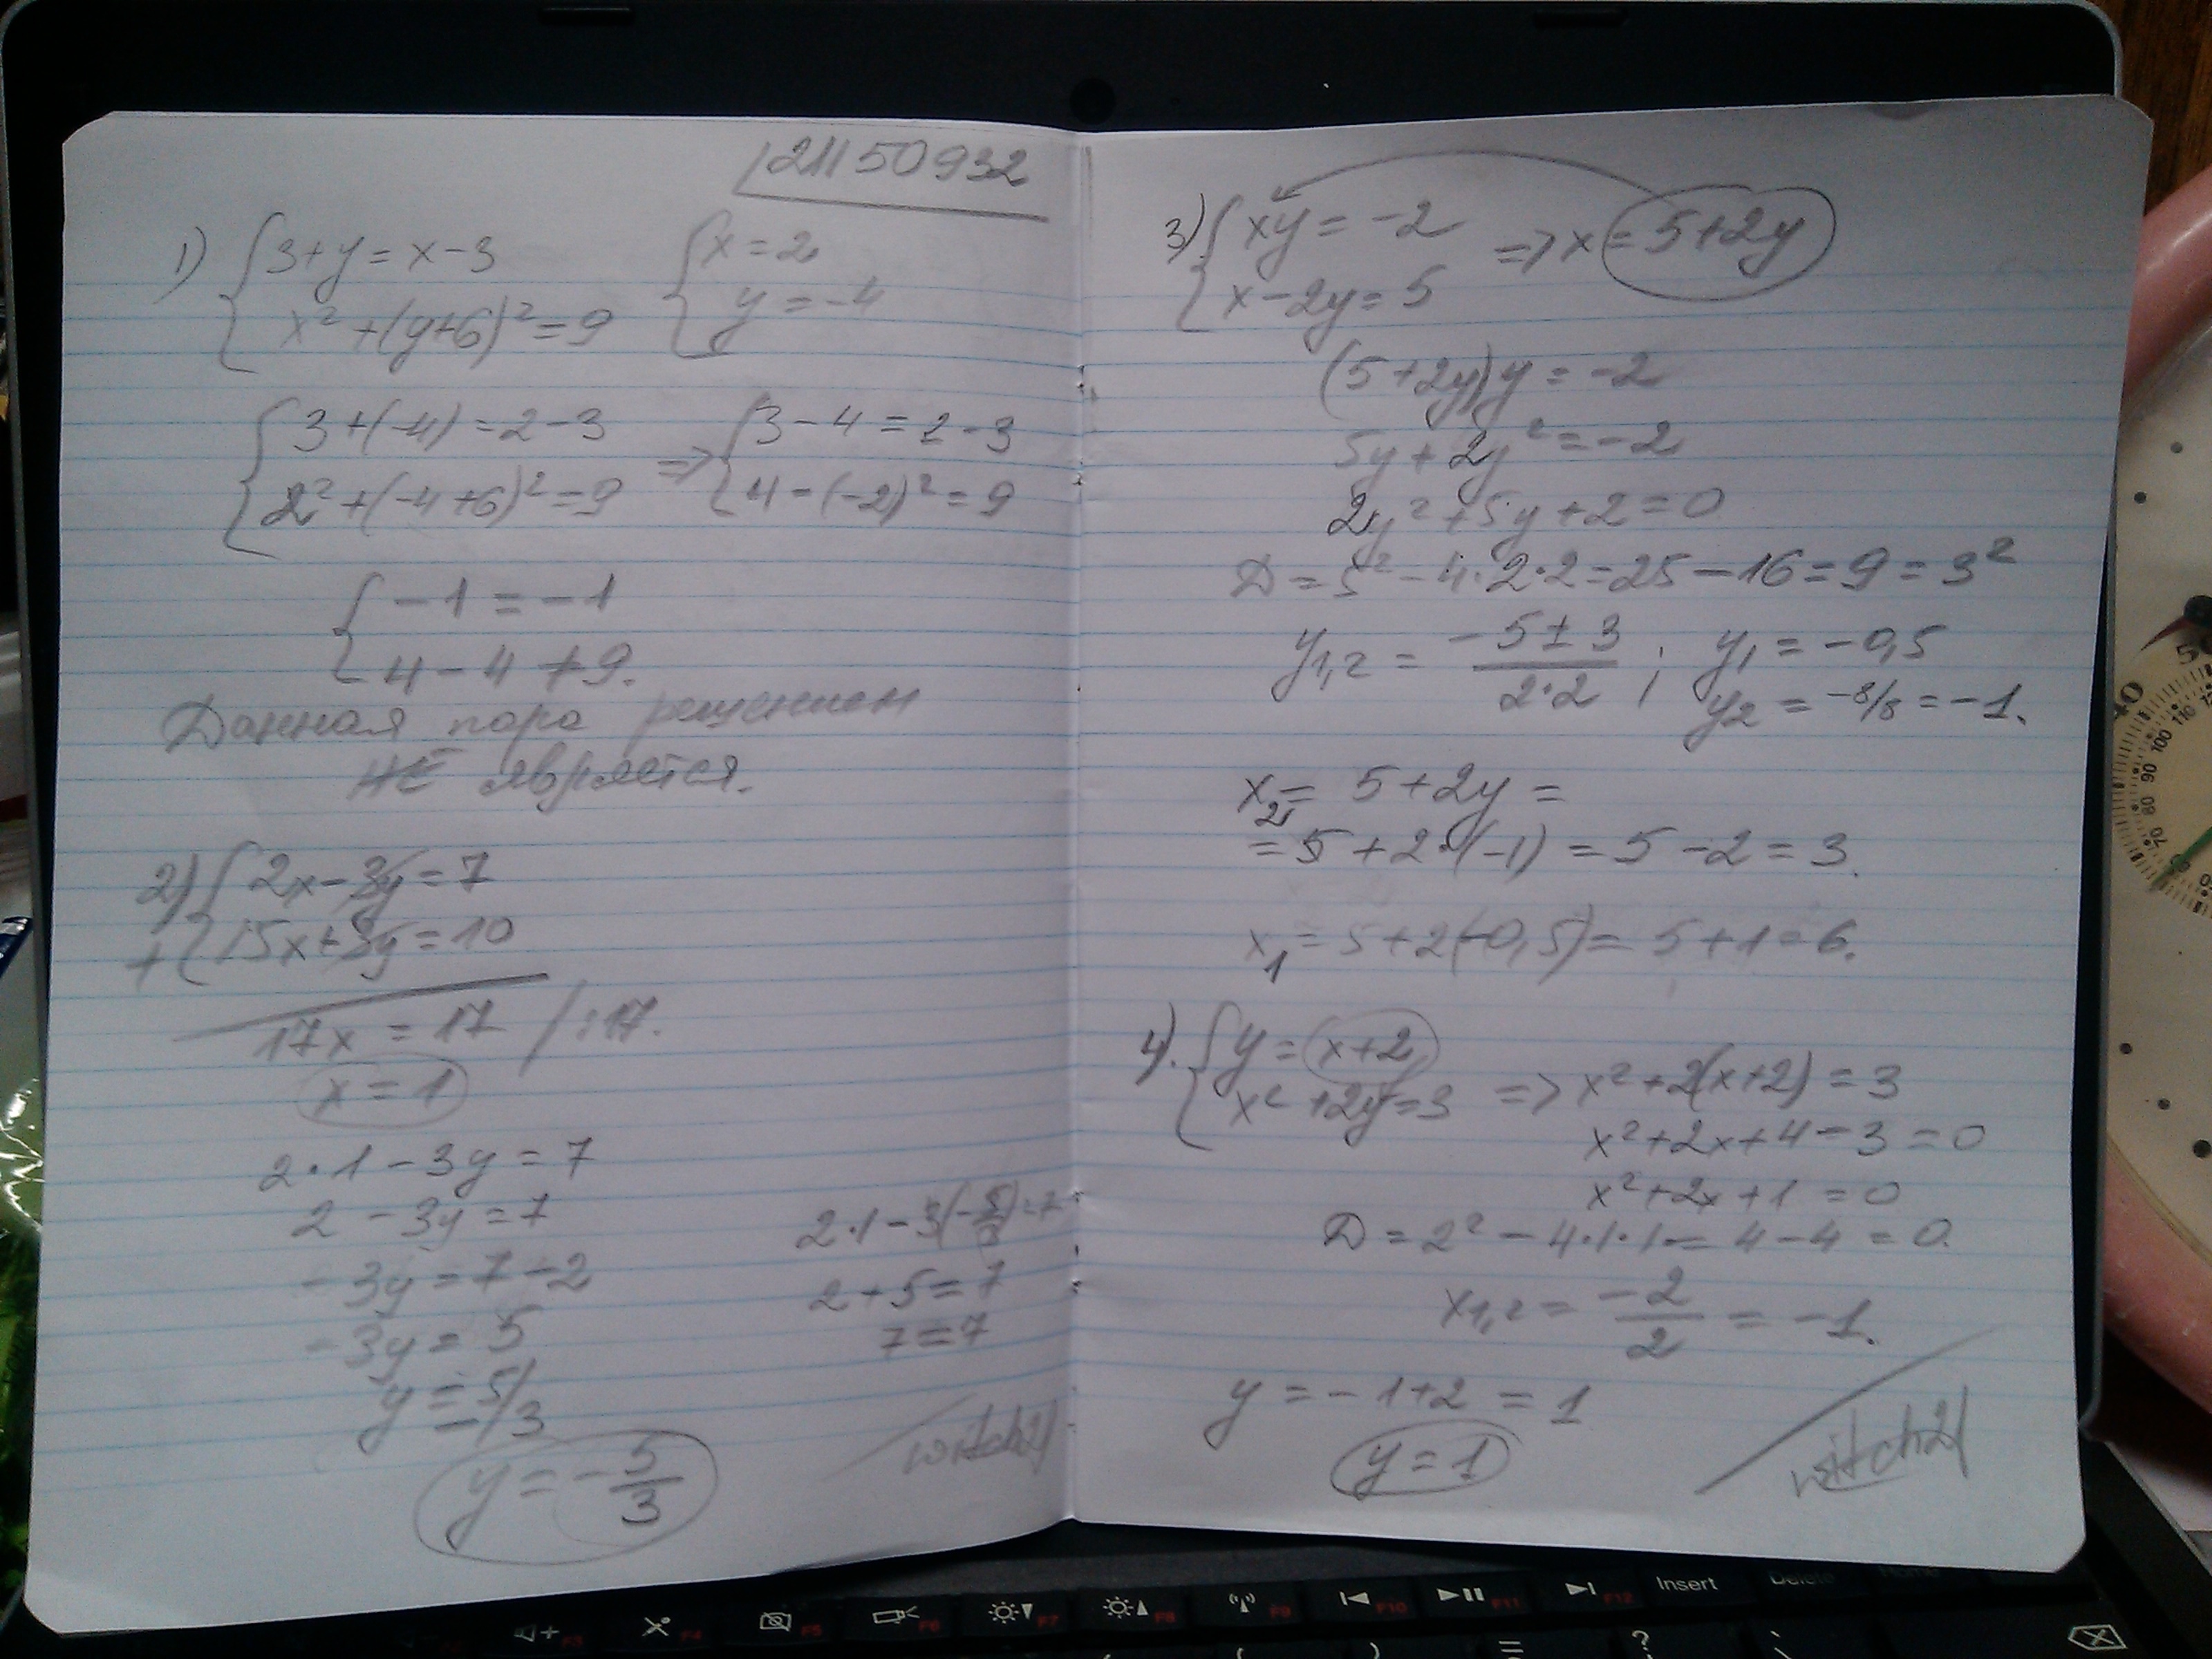 21150932
1) { 3+y = x-3
x² + (y+6)² = 9
{ x = 2
y = -4
{ 3+(-4) = 2-3
2² + (-4+6)² = 9
=> { 3-4 = 2-3
4-(-2)² = 9
{ -1 = -1
4-4 ≠ 9.
Данная пара решением
НЕ является.
2) { 2x-3y = 7
+ { 15x+3y = 10
17x = 17 /:17.
x = 1
2·1-3y = 7
2 - 3y = 7
-3y = 7-2
-3y = 5
y = -5/3
y = -5/3
2·1-3(-5/3)=7
2+5=7
7=7
witch21
3) { xy = -2 => x = 5+2y
x-2y = 5
(5+2y)y = -2
5y+2y² = -2
2y²+5y+2 = 0
D = 5² - 4·2·2 = 25-16 = 9 = 3²
y1,2 = (-5±3)/(2·2) ; y1 = -0,5
y2 = -8/8 = -1.
x2 = 5+2y =
= 5+2·(-1) = 5-2 = 3.
x1 = 5+2(-0,5) = 5+1 = 6.
4). { y = x+2
x²+2y=3 => x²+2(x+2) = 3
x²+2x+4-3 = 0
x²+2x+1 = 0
D = 2² - 4·1·1 = 4-4 = 0.
x1,2 = -2/2 = -1.
y = -1+2 = 1
y = 1
witch21
F3
F4
F5
F6
F7
F8
F9
F10
F11
F12
Insert
Delete
Home
?
110
100
90
80
70